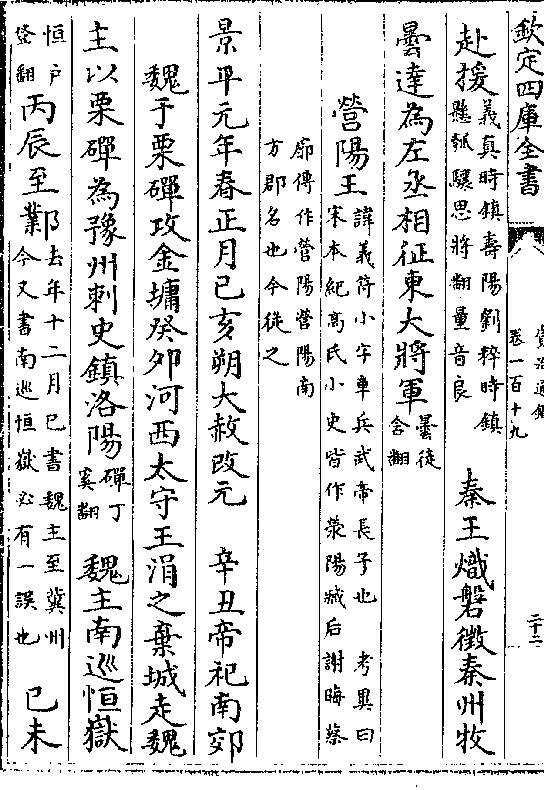 欽定四庫全書
資治通鑑
卷一百十九
二十二
赴援義真時鎮壽陽劉粹時鎮
懸瓠驤思將翻量音良 秦王熾磐徵秦州牧
曇達為左丞相征東大將軍曇徒
含翻
營陽王諱義符小字車兵武帝長子也 考異曰
宋本紀高氏小史皆作滎陽臧后謝晦蔡
廓傳作營陽營陽南
方郡名也今從之
景平元年春正月己亥朔大赦改元 辛丑帝祀南郊
魏于栗磾攻金墉癸夘河西太守王涓之棄城走魏
主以栗磾為豫州刺史鎮洛陽磾丁
奚翻 魏主南巡恒嶽
恒户
登翻丙辰至鄴去年十二月已書魏主至冀州
今又書南巡恒嶽必有一誤也 己未